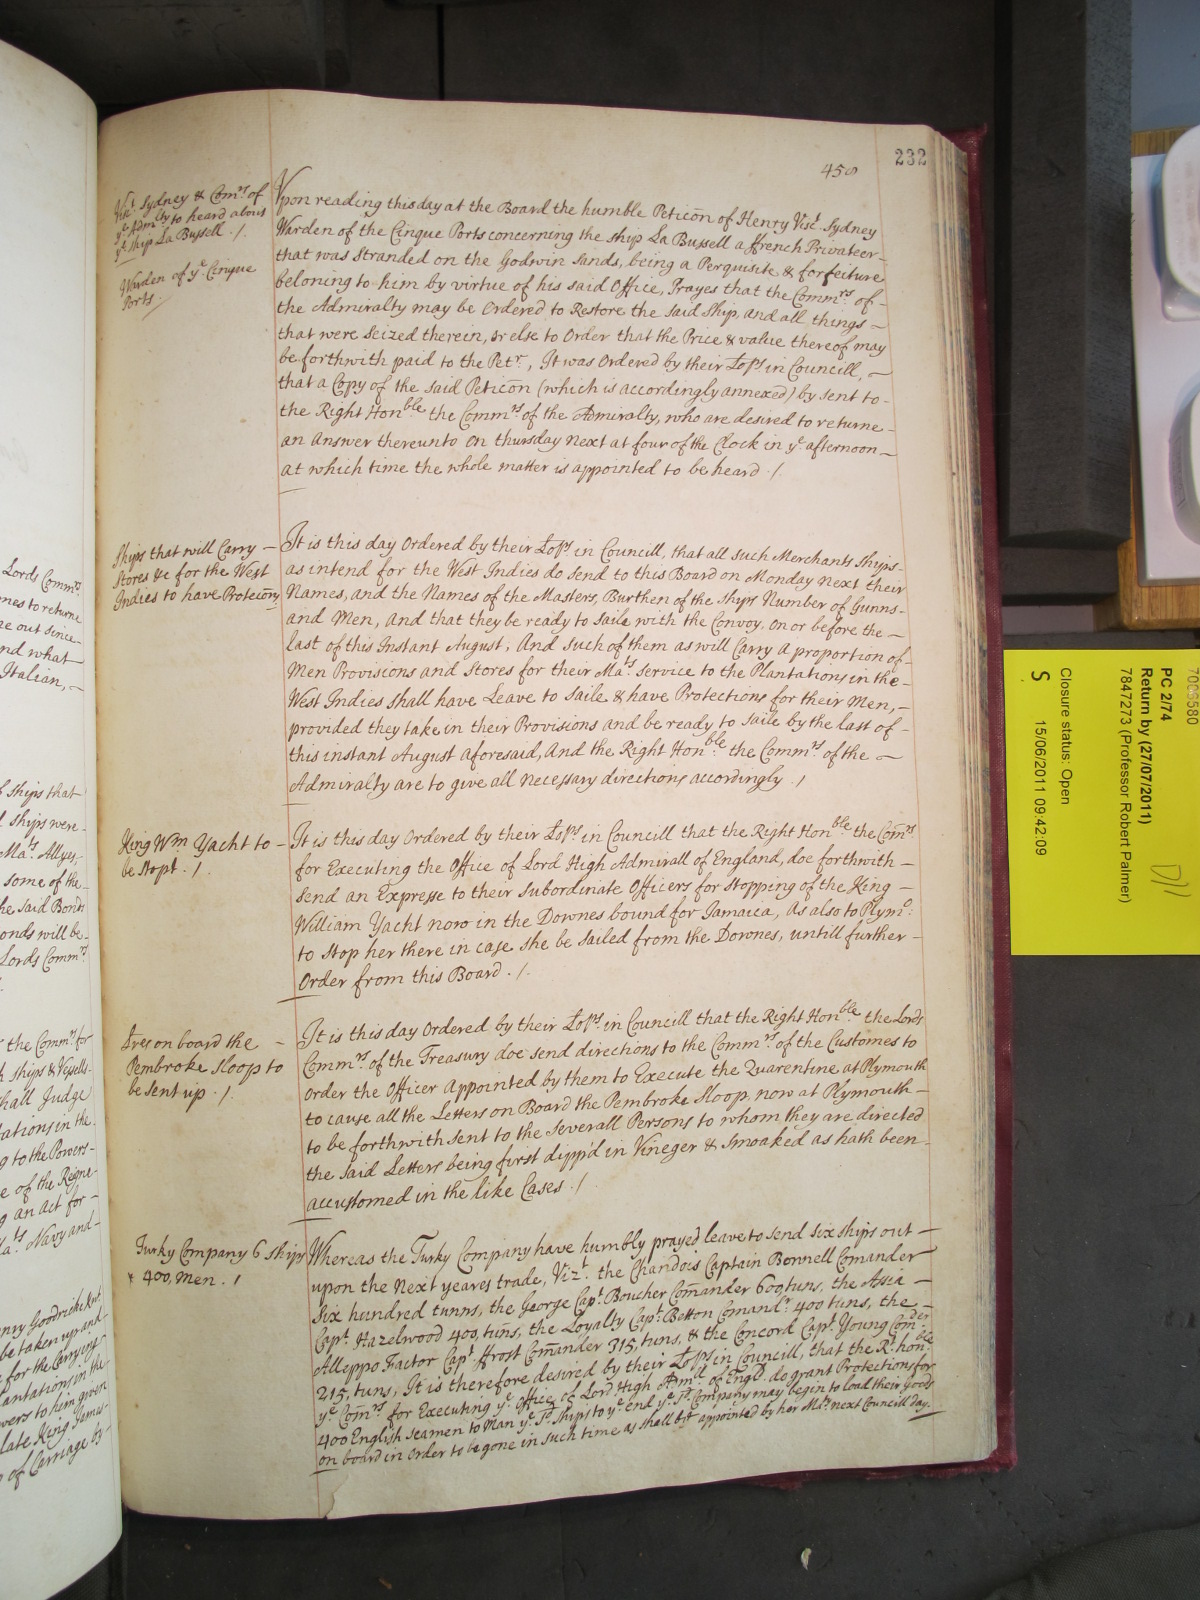 232
458
Visct. Sydney & Comrs of
ye Admlty to heard about
ye Ship La Bussell ./.
Warden of ye Cinque
Ports
Vpon reading this day at the Board the humble Peticōn of Henry Visct. Sydney
Warden of the Cinque Ports concerning the ship La Bussell a ffrench Privateer
that was Stranded on the Godwin Sands, being a Perquisite & forfeiture
beloning to him by virtue of his said Office, Prayes that the Commrs of
the Admiralty may be Ordered to Restore the said Ship, and all things
that were Seized therein, or else to Order that the Price & value thereof may
be forthwith paid to the Petr., It was Ordered by their Lops in Councill,
that a Copy of the said Peticōn (which is accordingly annexed) by sent to
the Right Honble the Commrs of the Admiralty, who are desired to returne
an Answer thereunto on Thursday next at four of the Clock in ye afternoon
at which time the whole matter is appointed to be heard ./.
Ships that will Carry
Stores &c for the West
Indies to have Protecōns
It is this day Ordered by their Lops in Councill, that all such Merchants Ships
as intend for the West Indies do send to this Board on Monday next their
Names, and the Names of the Masters, Burthen of the Ships Number of Gunns
and Men, and that they be ready to saile with the Convoy. on or before the
last of this Instant August, And such of them as will Carry a proportion of
Men Provisions and Stores for their Mats service to the Plantations in the
West Indies shall have Leave to Saile & have Protections for their Men,
provided they take in their Provisions and be ready to Saile by the last of
this instant August aforesaid, And the Right Honble the Commrs of the
Admiralty are to give all necessary directions accordingly ./
King Wm Yacht to
be Stopt ./.
It is this day Ordered by their Lops in Councill that the Right Honble the Comrs
for Executing the Office of Lord High Admirall of England, doe forthwith
send an Expresse to their Subordinate Officers for Stopping of the King
William Yacht now in the Downes bound for Jamaica, As also to Plymo:
to Stop her there in case she be Sailed from the Downes, untill further
Order from this Board ./.
Lres on board the
Pembroke Sloop to
be sent up ./.
It is this day Ordered by their Lops. in Councill that the Right Honble the Lords
Commrs of the Treasury doe send directions to the Commrs of the Customes to
order the Officer Appointed by them to Execute the Quarentine at Plymouth
to cause all the Letters on Board the Pembroke Sloop, now at Plymouth
to be forthwith sent to the Severall Persons to whom they are directed
the said Letters being first dipp'd in Vineger & Smoaked as hath been
accustomed in the like Cases ./
Turky Company 6 Ships
& 400, Men. ./
Whereas the Turky Company have humbly prayed leave to send six ships out
upon the Next yeares trade, Vizt. the Chandois Captain Bonnell Comander
six hundred tunns, the George Capt. Boucher Comander 600 tuns, the Asia
Capt. Hazelwood 400, tuns, the Loyalty Capt. Betton Comandr. 400 tuns, the
Alleppo Factor Capt ffrost Comānder 315, tuns, & the Concord Capt. Young Comder
215, tuns, It is therefore desired by their Lops in Councill, that the Rt. honble
ye Comrs for Executing ye Office of Lord High Admll of Engld. do grant Protections for
400 English Seamen to Man ye sd. Ships to ye end ye sd. Company may begin to load their goods
on board in order to be gone in such time as shall be appointed by her Mats next Councill day.
Lords Commrs
mes to returne
e out since
nd what
Italian,
f Ships that
ships were
Mats. Allyes,
some of the
he said Bonds
onds will be
Lords Commrs
r the Commrs for
h ships & Vessells
shall Judge
tations in the
g to the Powers
e of the Regne
g an act for
Mats. Navy and
enry Goodricke Knt
be taken up and
for the Carrying
Plantations in the
wers to him given
late King James
of Carriage by
PC 2/74
Return by (27/07/2011)
7847273 (Professor Robert Palmer)
Closure status: Open
S 15/06/2011 09:42:09